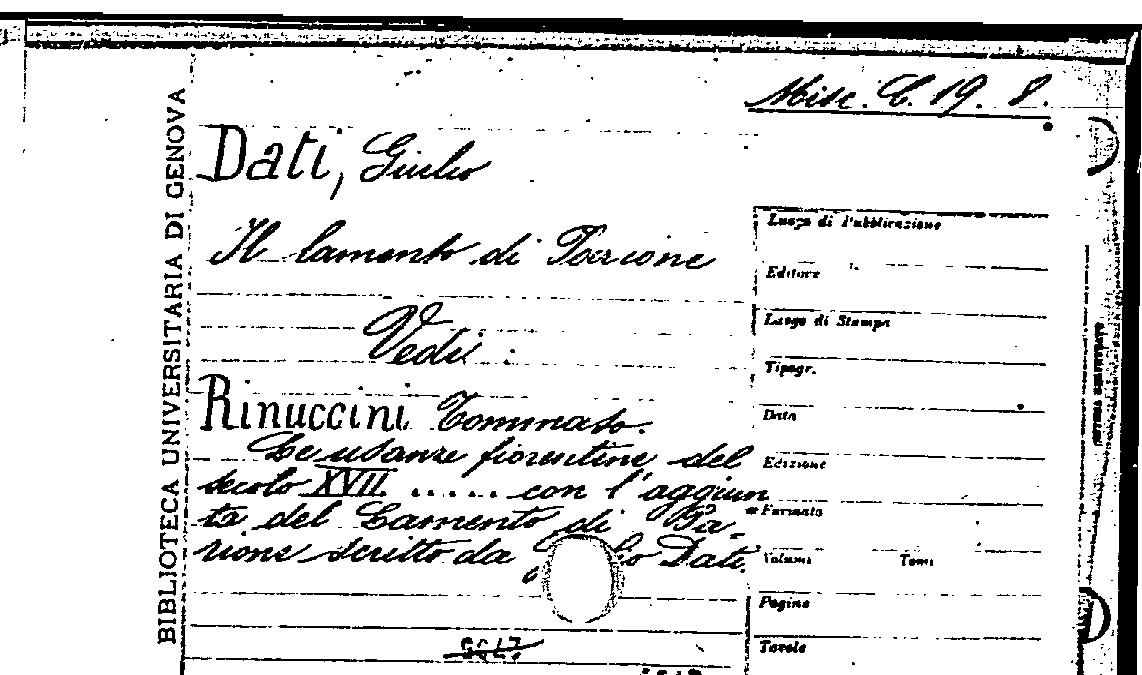 Misc. C. 19. 8.
BIBLIOTECA UNIVERSITARIA DI GENOVA
Dati, Giulio
Il lamento di Parione
Vedi:
Rinuccini Tommaso.
Le usanze fiorentine del
secolo XVII ..... con l'aggiun
ta del Lamento di Pa-
rione scritto da Dati.
Luogo di Pubblicazione
Editore
Luogo di Stampa
Tipogr.
Data
Edizione
Formato
Volumi Tomi
Pagine
Tavole